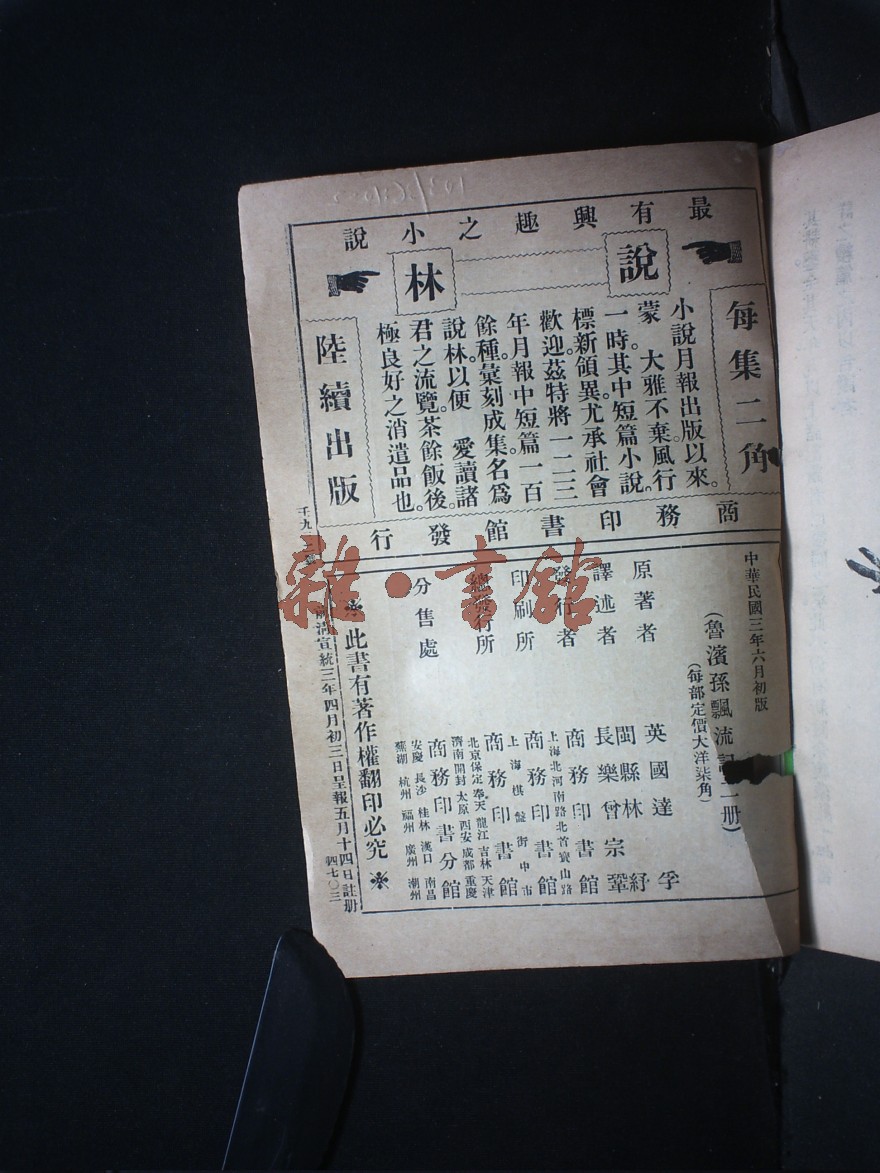 最有興趣之小說
說林
每集二角
小說月報出版以來。
蒙。大雅不棄。風行
一時。其中短篇小說。
標新領異。尤承社會
歡迎。茲特將一二三
年月報中短篇一百
餘種。彙刻成集。名爲
說林。以便 愛讀諸
君之流覽。茶餘飯後。
極良好之消遣品也。
陸續出版
商務印書館發行
中華民國三年六月初版
(魯濱孫飄流記二册)
(每部定價大洋柒角)
原著者 英國達孚
譯述者 閩縣林紓
長樂曾宗鞏
發行者 商務印書館
上海北河南路北首寶山路
印刷所 商務印書館
上海棋盤街中市
總發行所 商務印書館
北京保定奉天龍江吉林天津
濟南開封太原西安成都重慶
分售處 商務印書分館
安慶長沙桂林漢口南昌
蕪湖杭州福州廣州潮州
※此書有著作權翻印必究※
前清宣統三年四月初三日呈報五月十四日註册
四七〇三
雜·書館